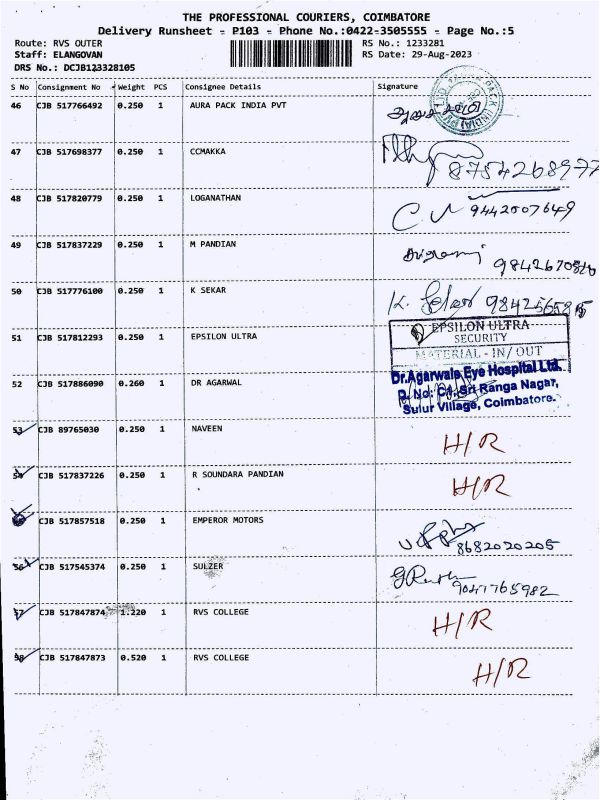 THE PROFESSIONAL COURIERS, COIMBATORE
Delivery Runsheet - P103 - Phone No.:0422-3505555 - Page No.:5
Route: RVS OUTER RS No.: 1233281
Staff: ELANGOVAN RS Date: 29-Aug-2023
DRS No.: DCJB123328105
S No Consignment No Weight PCS Consignee Details Signature
46 CJB 517766492 0.250 1 AURA PACK INDIA PVT
47 CJB 517698377 0.250 1 CCMAKKA 8754268977
48 CJB 517820779 0.250 1 LOGANATHAN 9442507649
49 CJB 517837229 0.250 1 M PANDIAN
50 CJB 517776100 0.250 1 K SEKAR K.
51 CJB 517812293 0.250 1 EPSILON ULTRA EPSILON ULTRA
SECURITY
MATERIAL - IN/OUT
Dr.Agarwals Eye Hospital Ltd.
52 CJB 517886090 0.260 1 DR AGARWAL D. No: C1, Sri Ranga Nagar,
Sulur Village, Coimbatore.
53 CJB 89765030 0.250 1 NAVEEN H/R
54 CJB 517837226 0.250 1 R SOUNDARA PANDIAN H/R
CJB 517857518 0.250 1 EMPEROR MOTORS 8682020205
56 CJB 517545374 0.250 1 SULZER 9041765982
57 CJB 517847874 1.220 1 RVS COLLEGE H/R
58 CJB 517847873 0.520 1 RVS COLLEGE H/R